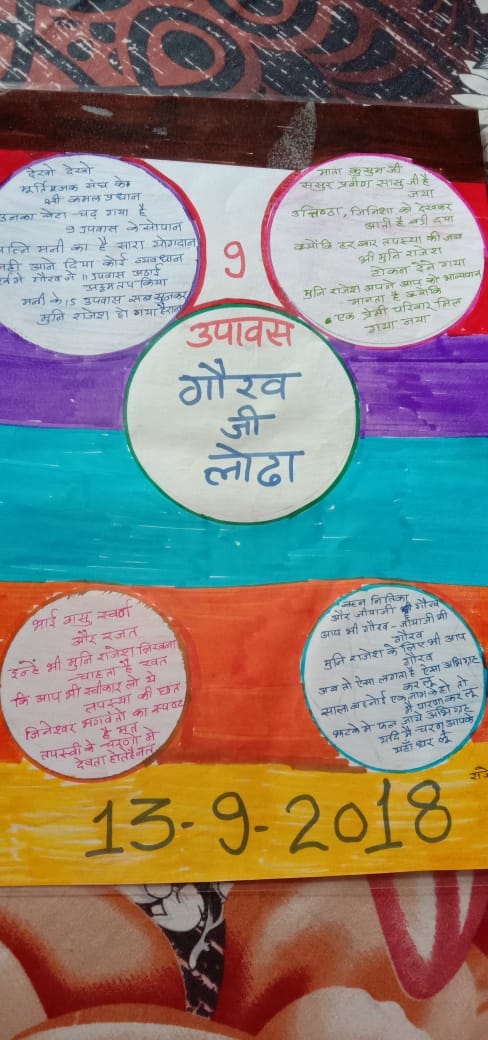 देखो देखो
मूर्तिपूजक संघ के
श्री कमल प्रधान
उनका बेटा चढ़ गया है
9 उपवास के सोपान
पत्नि मनी का है सारा योगदान
नहीं आने दिया कोई व्यवधान
गौरव ने 11 उपवास अठाई
अठ्ठमतप किया
मनी के 15 उपवास सब सुनकर
मुनि राजेश हो गया हैरान
माता कुसुम जी
ससुर प्रवीण सासु जी है
जया
उत्तिष्ठा, जिनिशा को देखकर
आती है बड़ी दया
क्योंकि हर बार तपस्या की जब
भी मुनि राजेश
टोकन देने गया
मुनि राजेश अपने आप को भाग्यवान
मानता है क्योंकि
एक प्रेमी परिवार मिल
गया नया
9
उपावस
गौरव
जी
लोढा
भाई वासु, स्वर्ण
और रजत
इन्हें भी मुनि राजेश लिखना
चाहता है खत
कि आप भी स्वीकार लो ये
तपस्या की छत
जिनेश्वर भगवंतो का स्पष्ठ
है मत
तपस्वी के चरणो मे
देवता होते है नत
बहन नितिका
और जीयाजी श्री गौरव
आप भी गौरव - जीयाजी भी
गौरव
मुनि राजेश के लिए भी आप
गौरव
अब तो ऐसा लगता है ऐसा अभिग्रह
कर लूँ
साला बहनोई एक नाम के हो तो
मै पारणा कर लूँ
झटके मे फल जाये अभिग्रह
यदि मै चरण आपके
यहाँ धर लूँ
13-9-2018